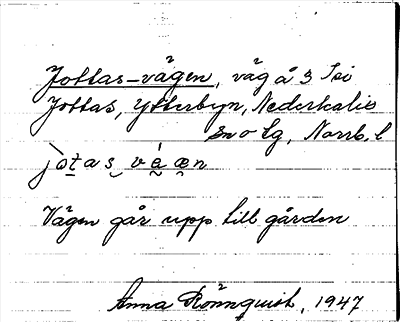 Jottas-vägen, väg å 3 Isi
Jottas, Ytterbyn, Nederkalix
sn o lg, Norrb. l
Vägen går upp till gården
Anna Rönnquist, 1947